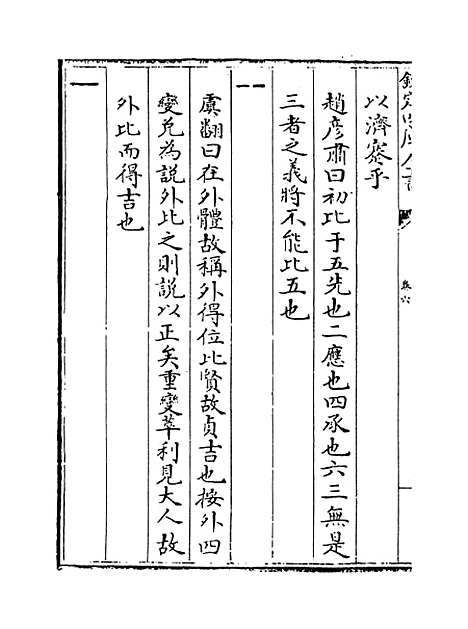 欽定四庫全書
卷六
以濟寮乎
趙彥肅曰初比于五先也二應也四承也六三無是
三者之義將不能比五也
虞翻曰在外體故稱外得位比賢故貞吉也按外四
變兌為說外比之則說以正矣重變萃利見大人故
外比而得吉也